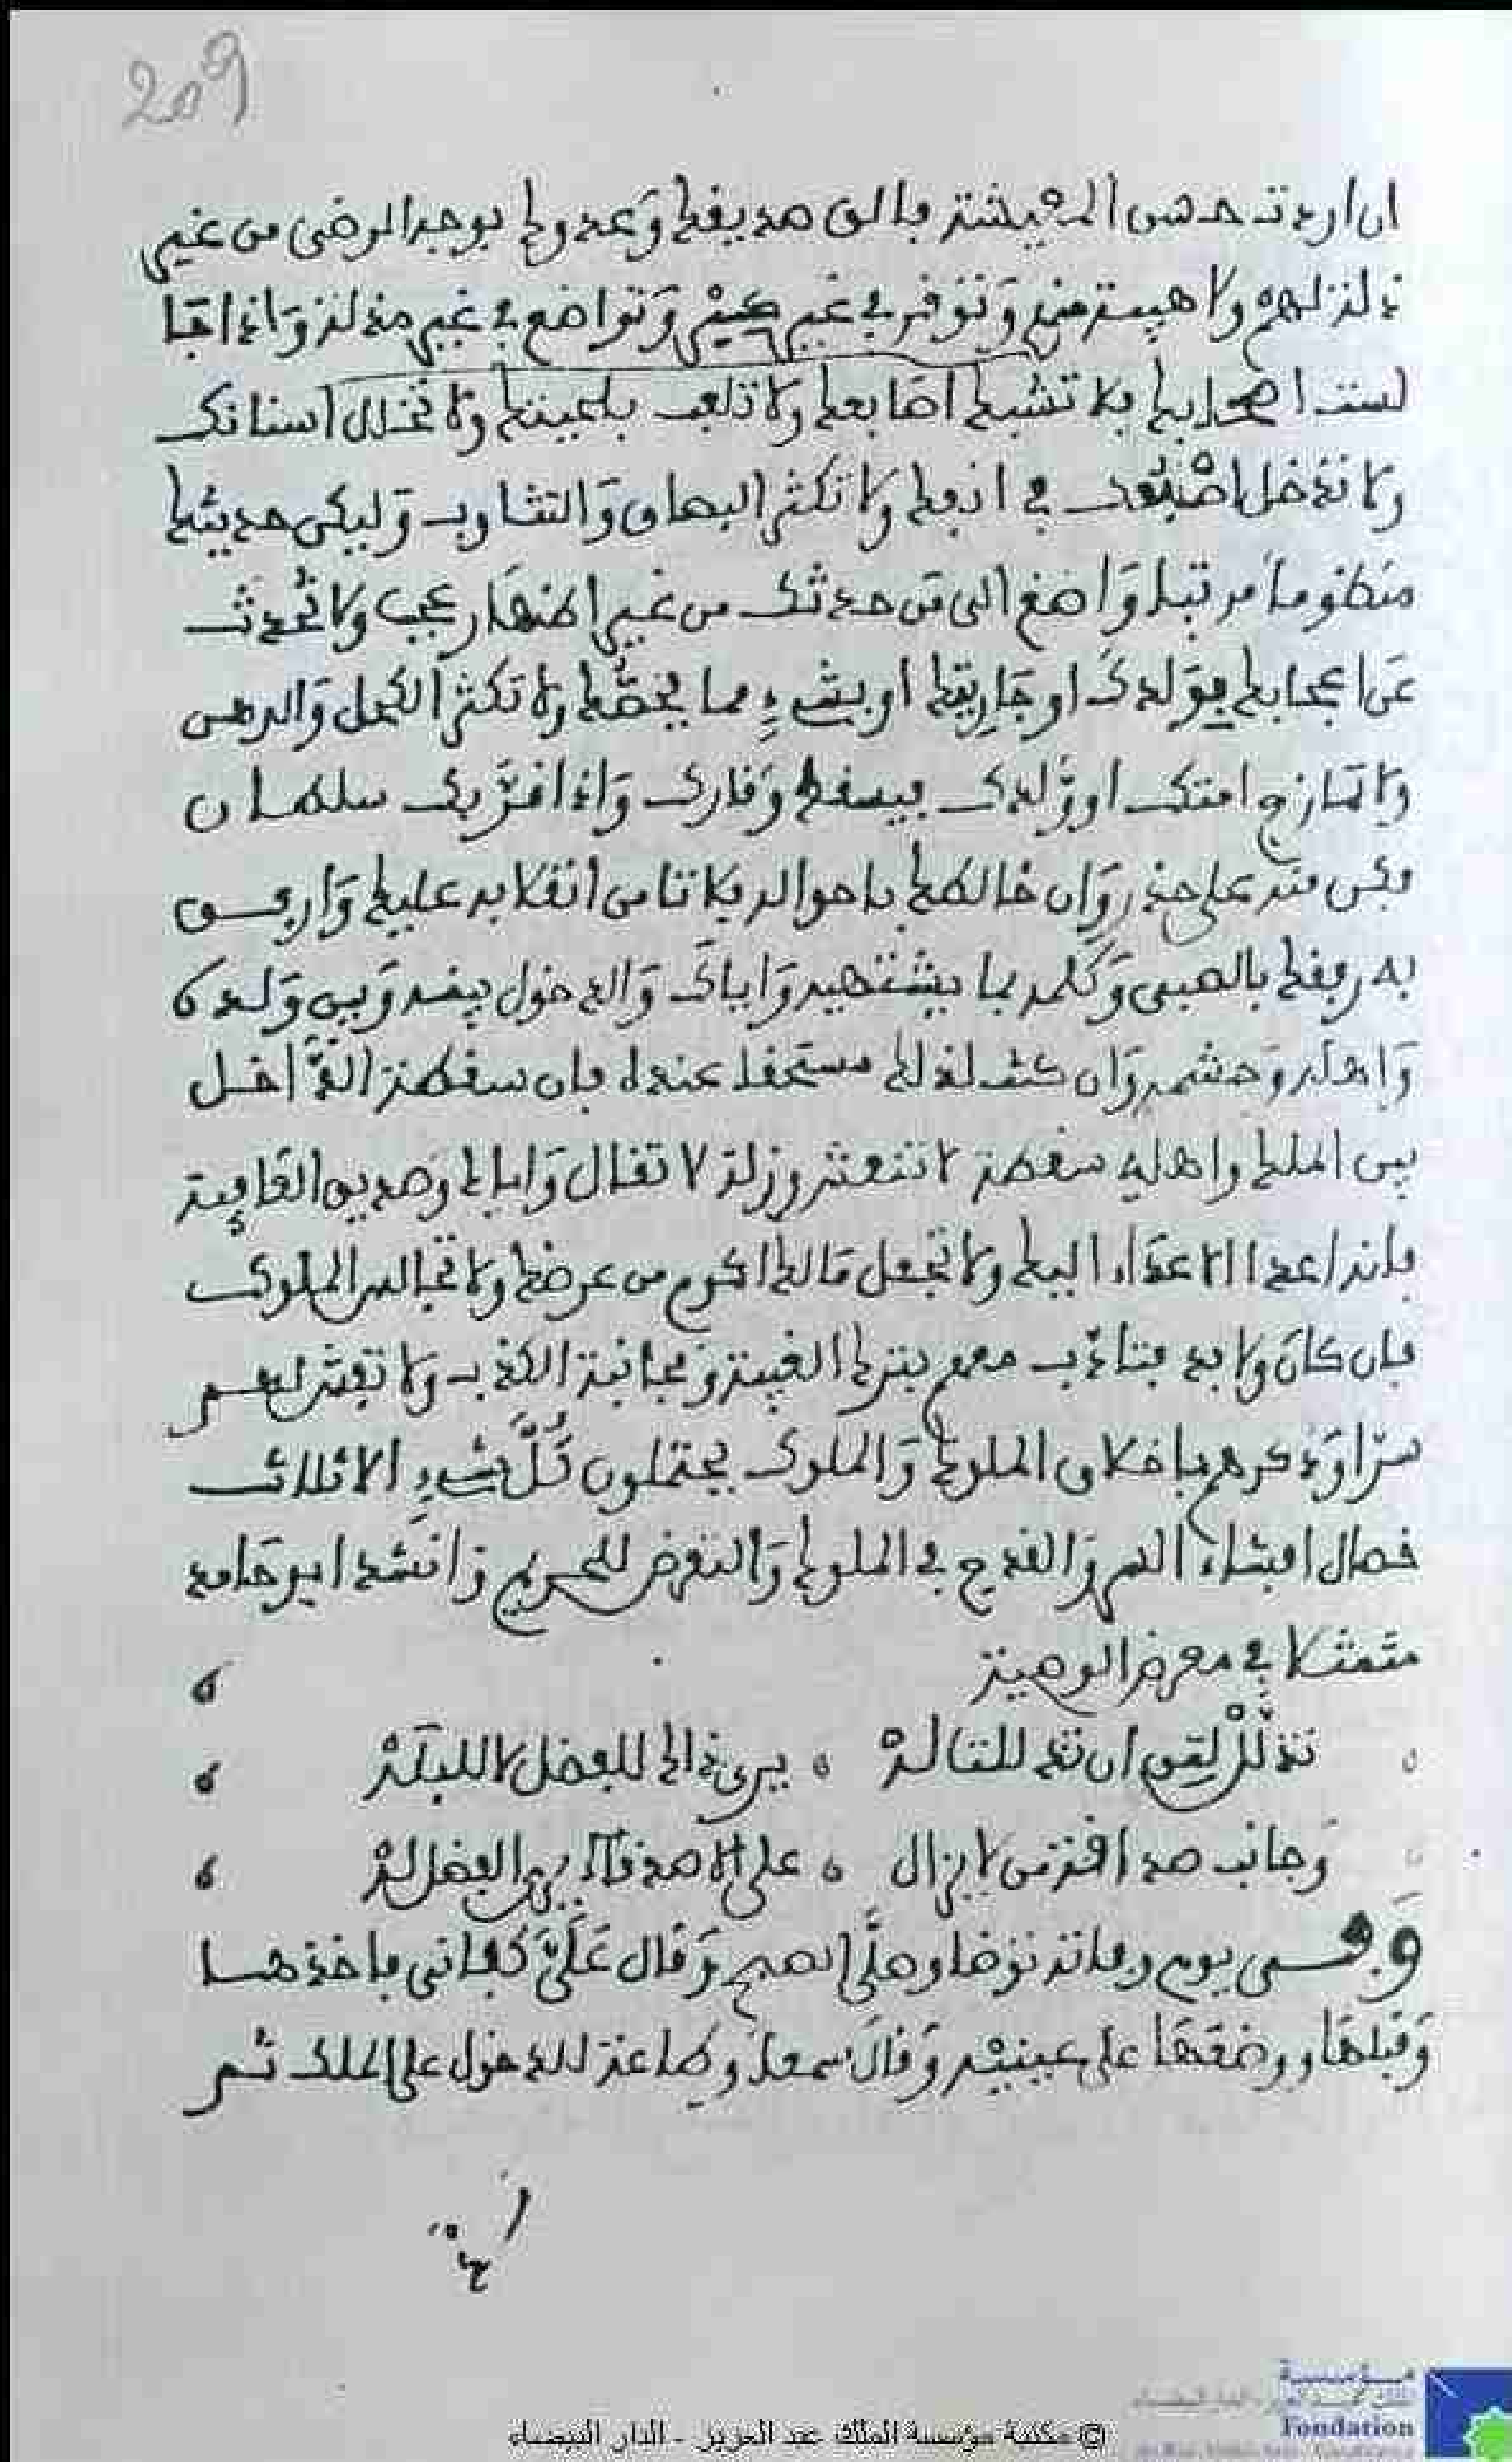 209
ان اردت حسن المعيشة فالق صديقك وعدوك بوجه الرضى من غير
ذلة لهم ولا هيبة منهم وتوقر في غير كبر وتواضع في غير مذلة واذا جا
لست اصحابك فلا تشبك اصابعك ولا تلعب بلحيتك ولا تخلل اسنانك
ولا تدخل اصْبُعك في انفك ولا تكثر البصاق والتثاوب وليكن حديثك
منظوما مرتبا واصغ الى من حدثك من غير اظهار عجب ولا تُحدث
عن اعجابك بولدك او جاريتك او بشيء مما يخصك ولا تكثر الكحل والدهن
ولا تمازح امتك او ولدك فيسقط وقارك واذا قربك سلطان
فكن منه على حذر وان خالطك باحواله فلا تامن انقلابه عليك وارفق
به رفقك بالصبي وكلمه بما يشتهيه واياك والدخول بينه وبين ولده
واهله وحشمه وان كنت لذلك مستحقا عنده فان سقطة الداخل
بين الملك واهليه سقطة لا تنتعش وزلة لا تقال واياك وصديق العافية
فانه اعدا الاعداء اليك ولا تجعل مالك اكرم من عرضك ولا تجالس الملوك
فان كان ولا بد فتادب معهم بترك الغيبة ومجانبة الكذب ولا تفش لهم
سرا وذكرهم باخلاق الملوك والملوك يحتملون كُلَّ شيء الا ثلاث
خصال افشاء السر والقدح في الملوك والتعرض للحريم وانشد ابو حامد
متمثلا في معرض الوصية
تذلَّلْ لمن ان تذللت له يرى ذاك للفضل لا للبله
وجانب صداقة من لا يزال على الاصدقاء يرى الفضل له
وفي يوم وفاته توضا وصلَّى الصبح وقال عَلَيَّ كفاني فاخذها
وقبلها ووضعها على عينيه وقال سمعا وطاعة للدخول على الملك ثم
© مكتبة مؤسسة الملك عبد العزيز - الدار البيضاء
مؤسسة
Fondation